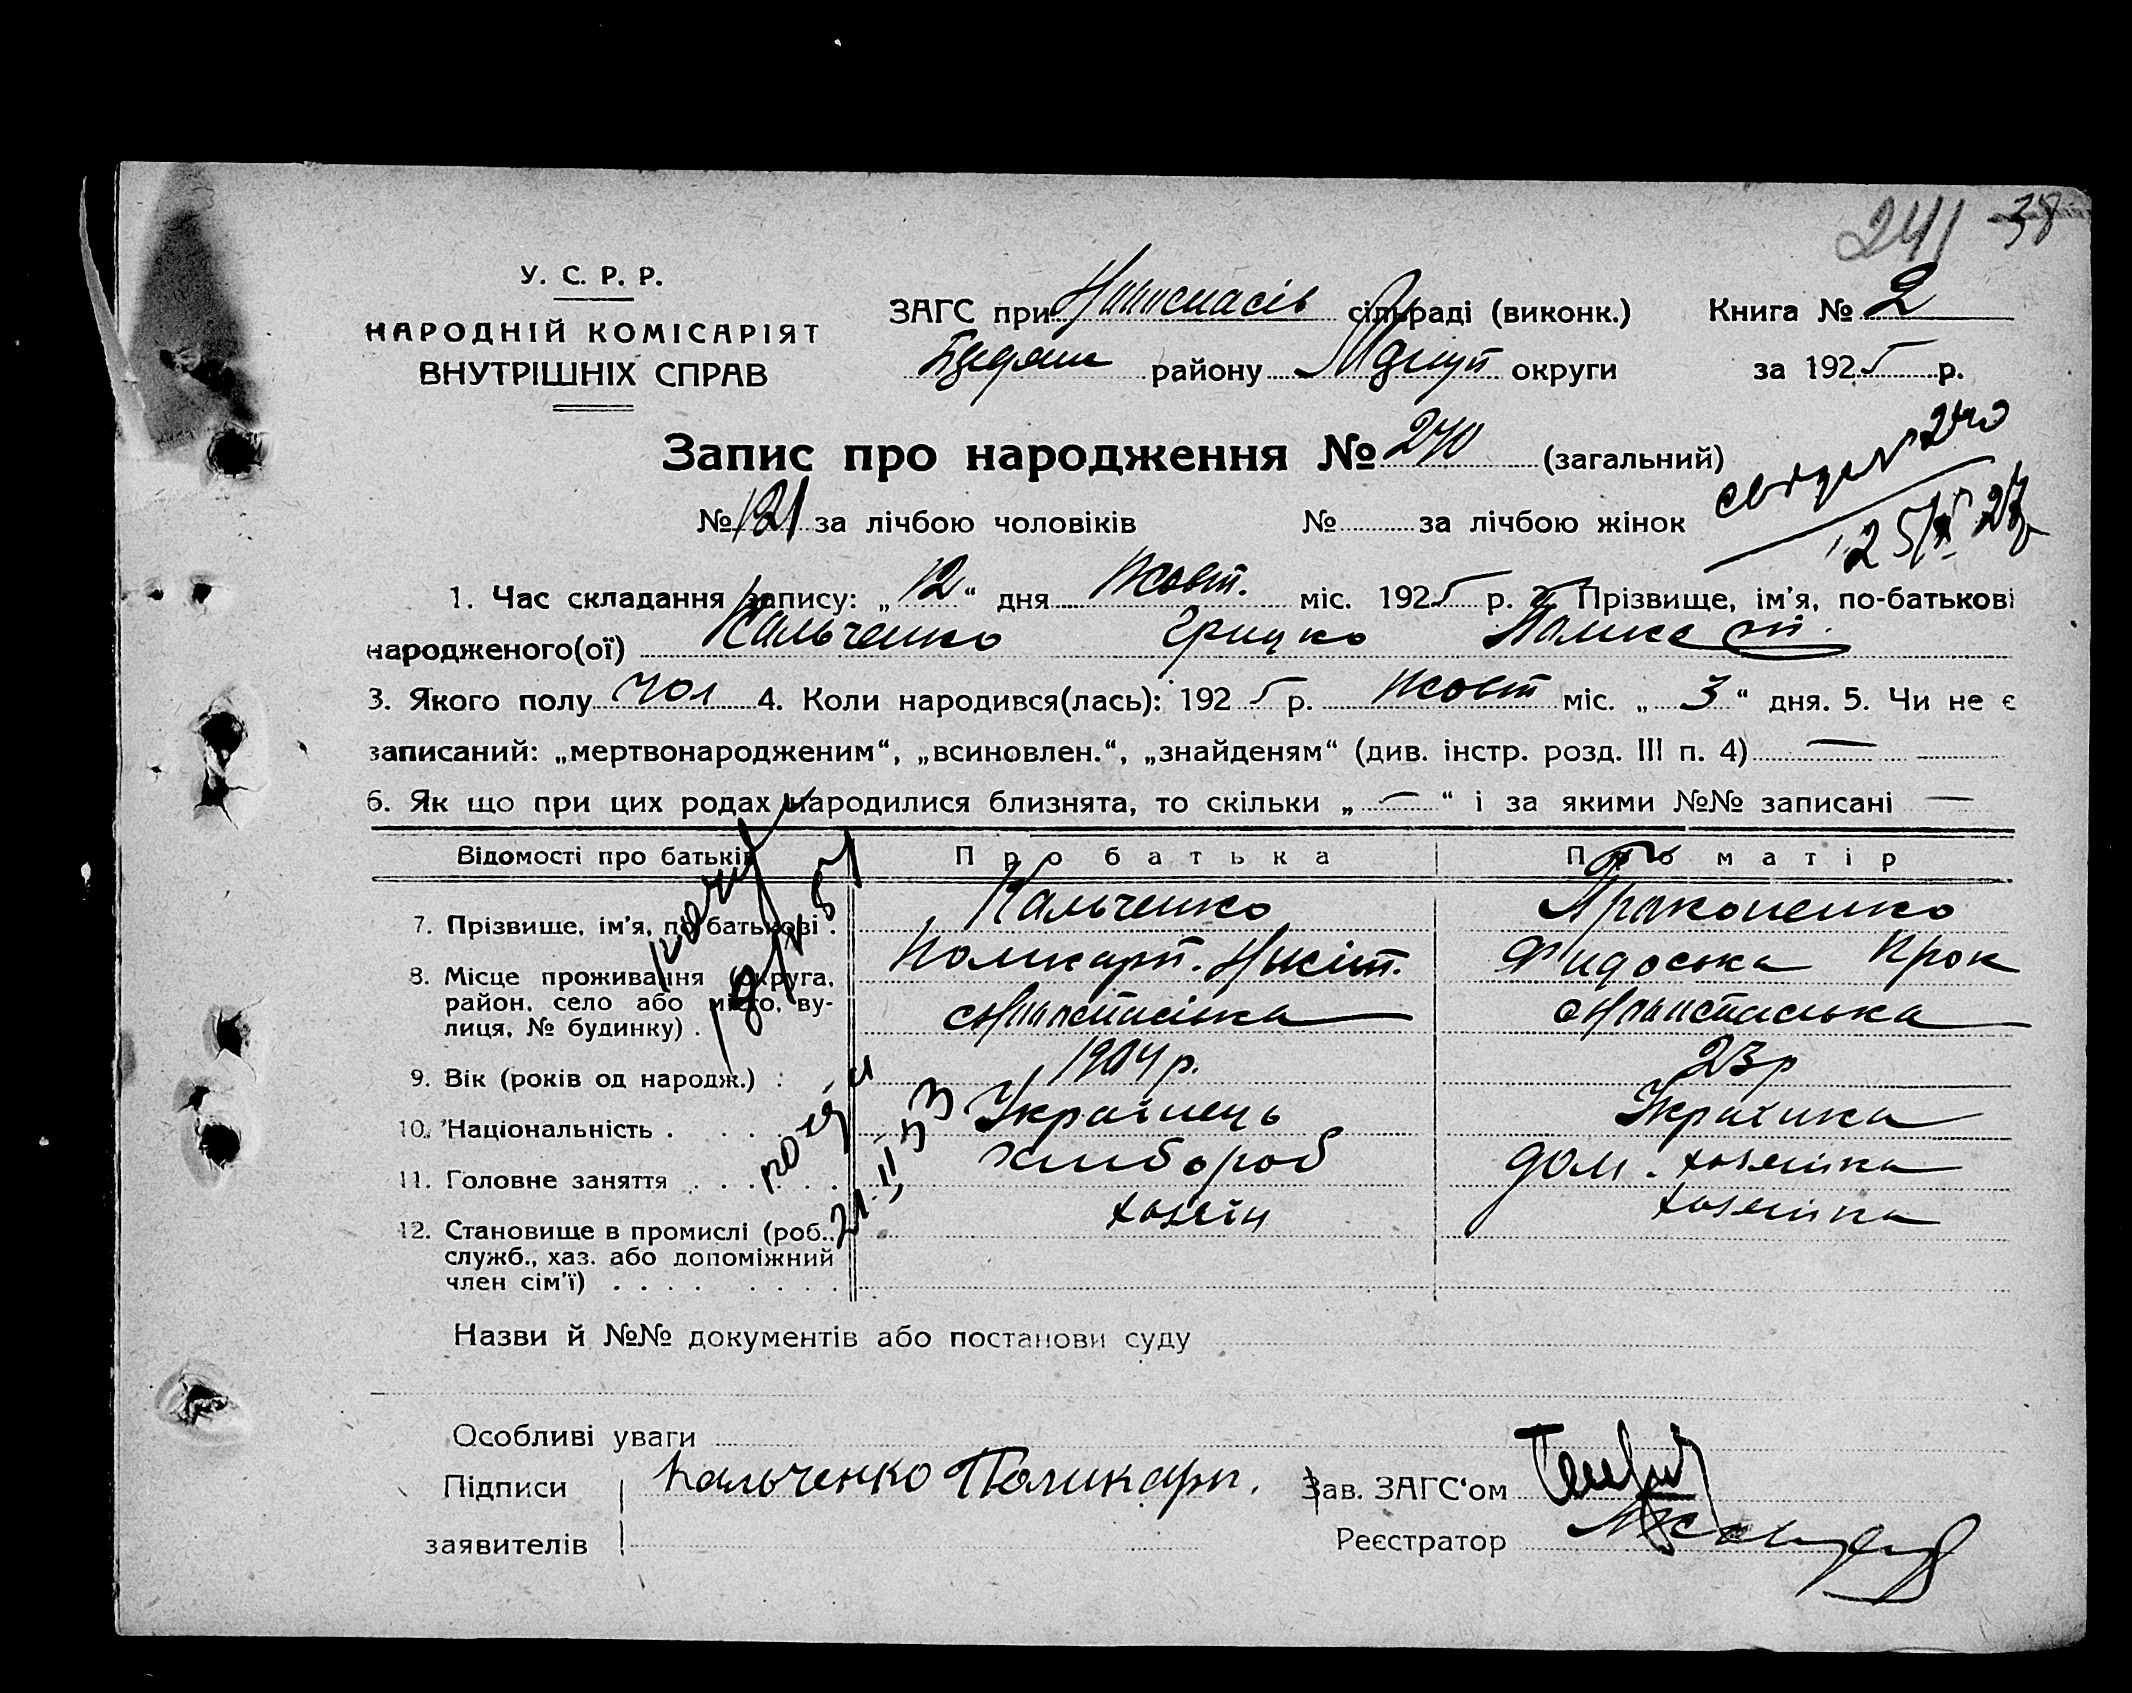 241 38
У. С. Р. Р.
НАРОДНІЙ КОМІСАРІЯТ
ВНУТРІШНІХ СПРАВ
ЗАГС при сільраді (виконк.) Книга № 2
району округи за 1925 р.
Запис про народження № 240 (загальний)
№ 121 за лічбою чоловіків № за лічбою жінок
1. Час складання запису: „12“ дня Жовт. міс. 1925 р. 2. Прізвище, ім'я, по-батькові
народженого(ої) Кальченко Грицко
3. Якого полу чол 4. Коли народився(лась): 1925 р. Жовт міс. „3“ дня. 5. Чи не є
записаний: „мертвонародженим“, „всиновлен.“, „знайденям“ (див. інстр. розд. III п. 4) —
6. Як що при цих родах народилися близнята, то скільки „—“ і за якими №№ записані —
Відомості про батьків Про батька Про матір
7. Прізвище, ім'я, по батькові . Кальченко Прокопенко
Поликарп. Микіт. Фидоська Прок
8. Місце проживання (округа,
район, село або місто, ву-
лиця, № будинку) .
9. Вік (років од народж.) : 1904 р. 23 р
10. Національність . Українець Українка
11. Головне заняття . хлибороб дом. хозяйка
12. Становище в промислі (роб., хозяїн хозяйка
служб., хаз. або допоміжний
член сім'ї) . . . .
Назви й №№ документів або постанови суду
Особливі уваги
Підписи Кальченко Поликарп. Зав. ЗАГС'ом
заявителів Реєстратор